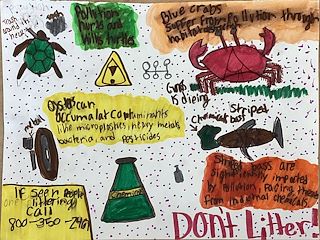 Pollution
hurts and
kills turtles
Blue crabs
suffer from Pollution through
habitat
trash
turtle
neck
Guy
is dieing
Oysters can
accumulat contaminants
like microplastics, heavy metals
bacteria, and pesticides
metal
Chemical boot
striped
Chemical
Striped bass are
significantly impacted
by Pollution, facing threats
from industrial chemicals.
IF seen People
littering
Call
800-350-
DON't Litter!